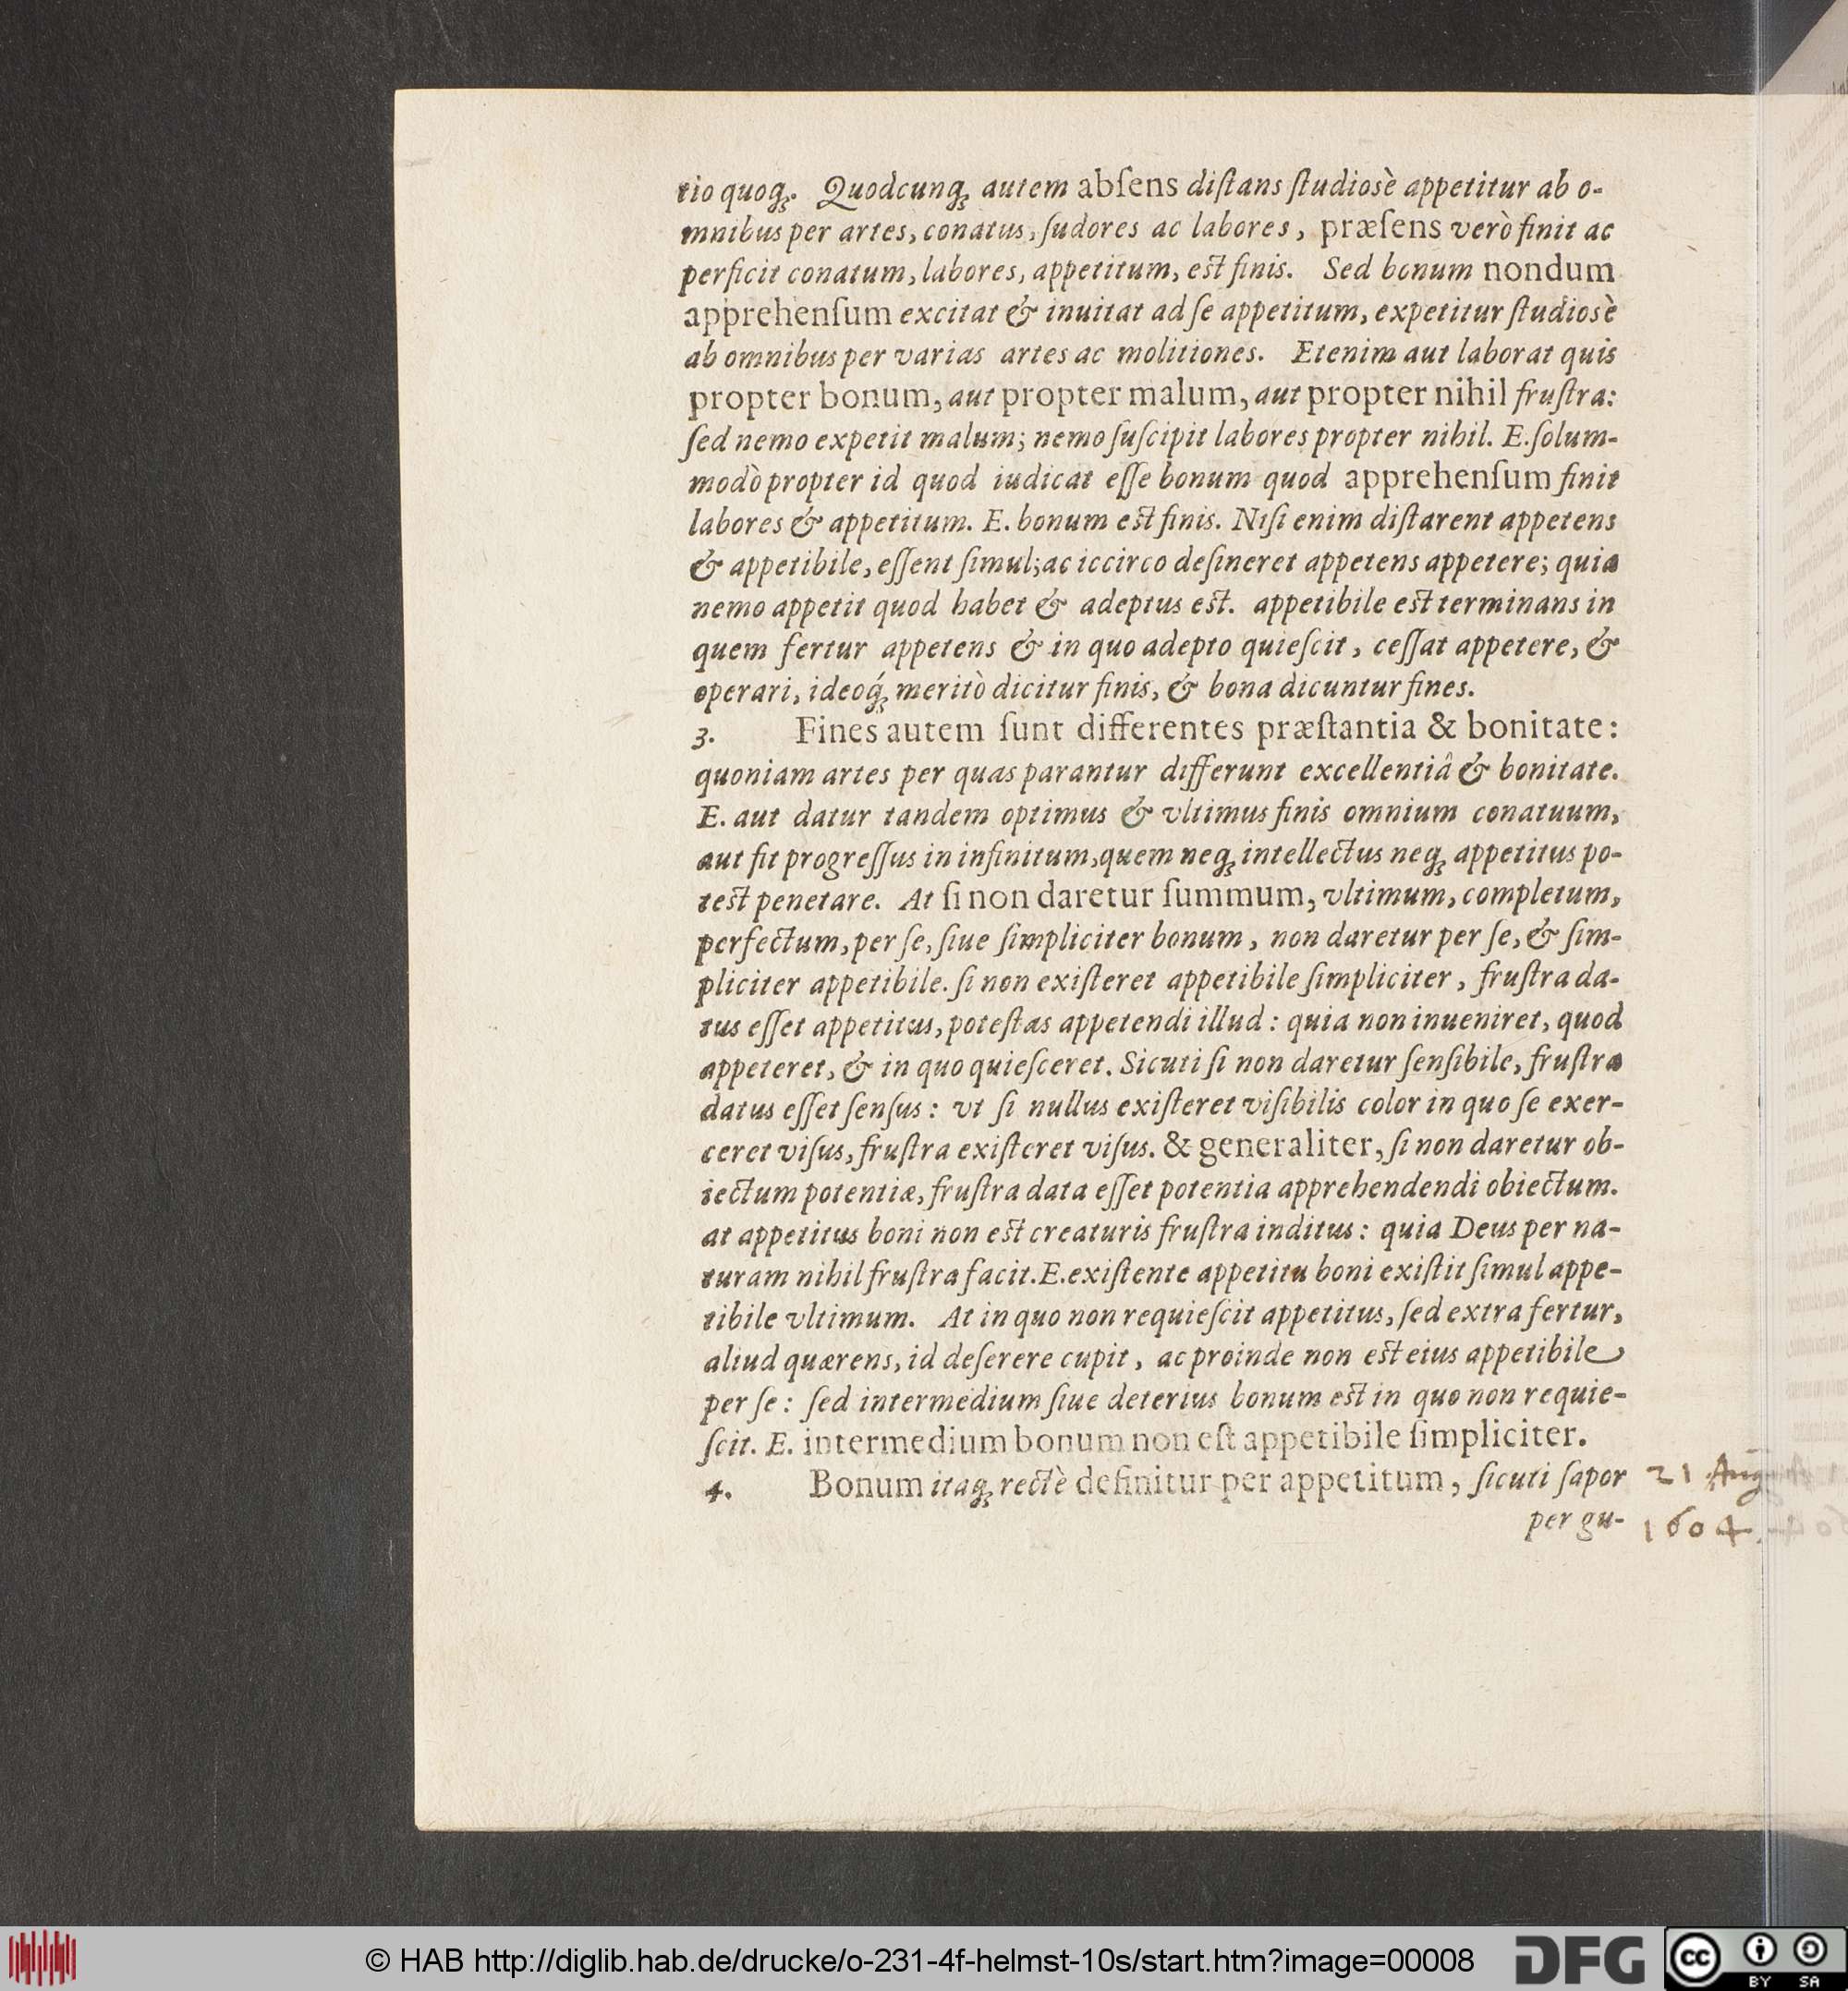 tio quoq́;. Quodcunq; autem abſens diſtans ſtudiosè appetitur ab o-
mnibus per artes, conatus, ſudores ac labores, præſens verò finit ac
perficit conatum, labores, appetitum, eſt finis. Sed bonum nondum
apprehenſum excitat & inuitat ad ſe appetitum, expetitur ſtudiosè
ab omnibus per varias artes ac molitiones. Etenim aut laborat quis
propter bonum, aut propter malum, aut propter nihil fruſtra:
ſed nemo expetit malum; nemo ſuſcipit labores propter nihil. E. ſolum-
modò propter id quod iudicat eſſe bonum quod apprehenſum finit
labores & appetitum. E. bonum eſt finis. Niſi enim diſtarent appetens
& appetibile, eſſent ſimul; ac iccirco deſineret appetens appetere; quia
nemo appetit quod habet & adeptus eſt. appetibile eſt terminans in
quem fertur appetens & in quo adepto quieſcit, ceſſat appetere, &
operari, ideoq́; meritò dicitur finis, & bona dicuntur fines.
3. Fines autem ſunt differentes præſtantia & bonitate:
quoniam artes per quas parantur differunt excellentiâ & bonitate.
E. aut datur tandem optimus & vltimus finis omnium conatuum,
aut fit progreſſus in infinitum, quem neq; intellectus neq; appetitus po-
teſt penetare. At ſi non daretur ſummum, vltimum, completum,
perfectum, per ſe, ſiue ſimpliciter bonum, non daretur per ſe, & ſim-
pliciter appetibile. ſi non exiſteret appetibile ſimpliciter, fruſtra da-
tus eſſet appetitus, poteſtas appetendi illud: quia non inueniret, quod
appeteret, & in quo quieſceret. Sicuti ſi non daretur ſenſibile, fruſtra
datus eſſet ſenſus: vt ſi nullus exiſteret viſibilis color in quo ſe exer-
ceret viſus, fruſtra exiſteret viſus. & generaliter, ſi non daretur ob-
iectum potentiæ, fruſtra data eſſet potentia apprehendendi obiectum.
at appetitus boni non eſt creaturis fruſtra inditus: quia Deus per na-
turam nihil fruſtra facit. E. exiſtente appetitu boni exiſtit ſimul appe-
tibile vltimum. At in quo non requieſcit appetitus, ſed extra fertur,
aliud quærens, id deſerere cupit, ac proinde non eſt eius appetibile
per ſe: ſed intermedium ſiue deterius bonum eſt in quo non requie-
ſcit. E. intermedium bonum non eſt appetibile ſimpliciter.
4. Bonum itaq; rectè definitur per appetitum, ſicuti ſapor
per gu-
21 Aug
1604.
© HAB http://diglib.hab.de/drucke/o-231-4f-helmst-10s/start.htm?image=00008
DFG
cc BY SA